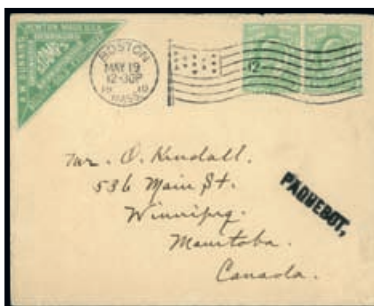 NEWTON MASS. U.S.A.
BOSTON
MAY 19
12-30P
19 10
MASS.
Mr. O. Kendall.
536 Main St.
Winnipeg.
Manitoba.
Canada.
PAQUEBOT,